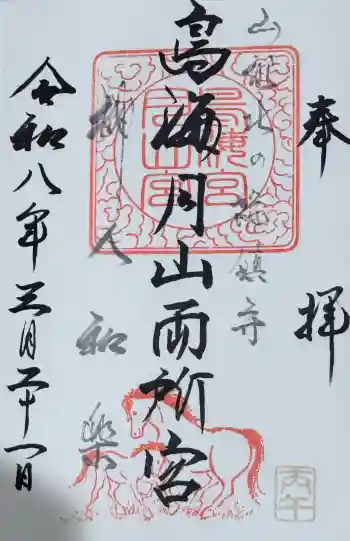 奉拝
山形北の総鎮守
鳥海月山両所宮
諸人和楽
令和八年三月二十一日
丙午